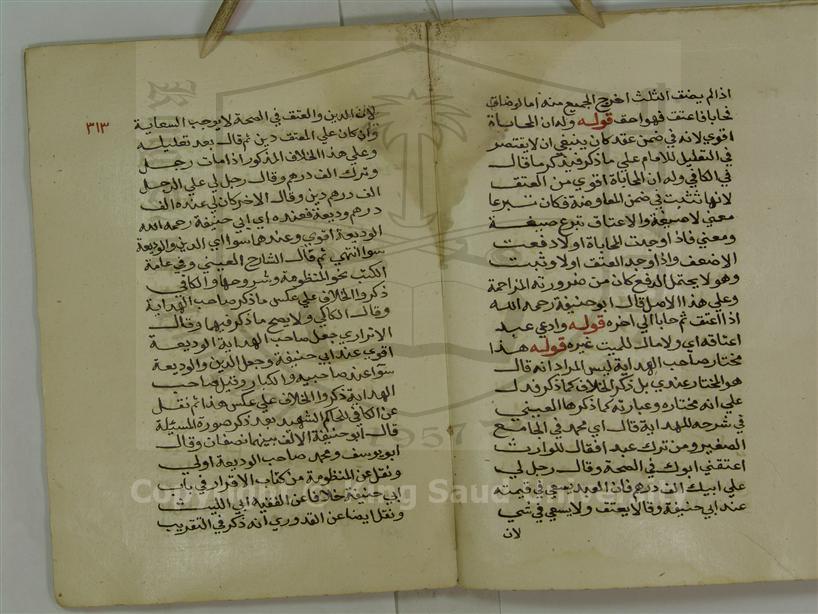 اذا لم يضف الثلث اخرج الجميع منه اما لو ضاق
فحابا فاعتق فهو احق قوله وله ان المحاباة
اقوي لانه في ضمن عقد كان ينبغي ان لا يقتصر
في التعليل للامام علي ما ذكر فيه كرما قال
في الكافي وله ان المحاباة اقوي من العتق
لانها تثبت في ضمن المعاوضة فكان تبرعا
معني لا صيغة والاعتاق تبرع صيغة
ومعني فاذا وجدت المحاباة اولا دفعت
الاضعف واذا وجد العتق اولا وثبت
وهو لا يحتمل الدفع كان من ضرورته المزاحمة
وعلي هذا الاصل قال ابو حنيفة رحمه الله
اذا اعتق ثم حابا الي اخره قوله وادعي عبد
اعتاقه اي ولا مال للميت غيره قوله هذا
مختار صاحب الهداية ليس المراد انه قال
هو المختار عندي بل ذكر الخلاف كما ذكر فدل
علي انه مختاره وعبارته كما ذكرها العيني
في شرحه للهداية قال اي محمد في الجامع
الصغير ومن ترك عبدا فقال للوارث
اعتقني ابوك في الصحة وقال رجل لي
علي ابيك الف درهم فان العبد يسعي في قيمته
عند ابي حنيفة وقالا يعتق ولا يسعي في شي
لان
٣١٣
لان الدين والعتق في الصحة لا يوجب السعاية
وان كان علي المعتق دين ثم قال بعد تعليله
وعلي هذا الخلاف المذكور اذا مات رجل
وترك الف درهم وقال رجل لي علي الرجل
الف درهم دين وقال الاخر كان لي عنده الف
درهم وديعة فعنده اي ابي حنيفة رحمه الله
الوديعة اقوي وعندهما سوا اي الدين والوديعة
سوا انتهي ثم قال الشارح العيني وفي عامة
الكتب نحو المنظومة وشروحها والكافي
ذكروا الخلاف علي عكس ما ذكر صاحب الهداية
وقال الكاكي ولا يصح ما ذكر فيها وقال
الاتراري جعل صاحب الهداية الوديعة
اقوي عند ابي حنيفة وجعل الدين والوديعة
سوآ عند صاحبيه والكبار وقبل صاحب
الهداية ذكروا الخلاف علي عكس هذا ثم نقل
عن الكافي للحاكم الشهيد بعد ذكر صورة المسئلة
قال ابو حنيفة الالف بينهما نصفان وقال
ابو يوسف ومحمد صاحب الوديعة اولي
ونقل عن المنظومة من كتاب الاقرار في باب
ابي حنيفة خلافا عن الفقيه ابي الليث
ونقل ايضا عن القدوري انه ذكر في التقريب
1957
Copyright © King Saud University